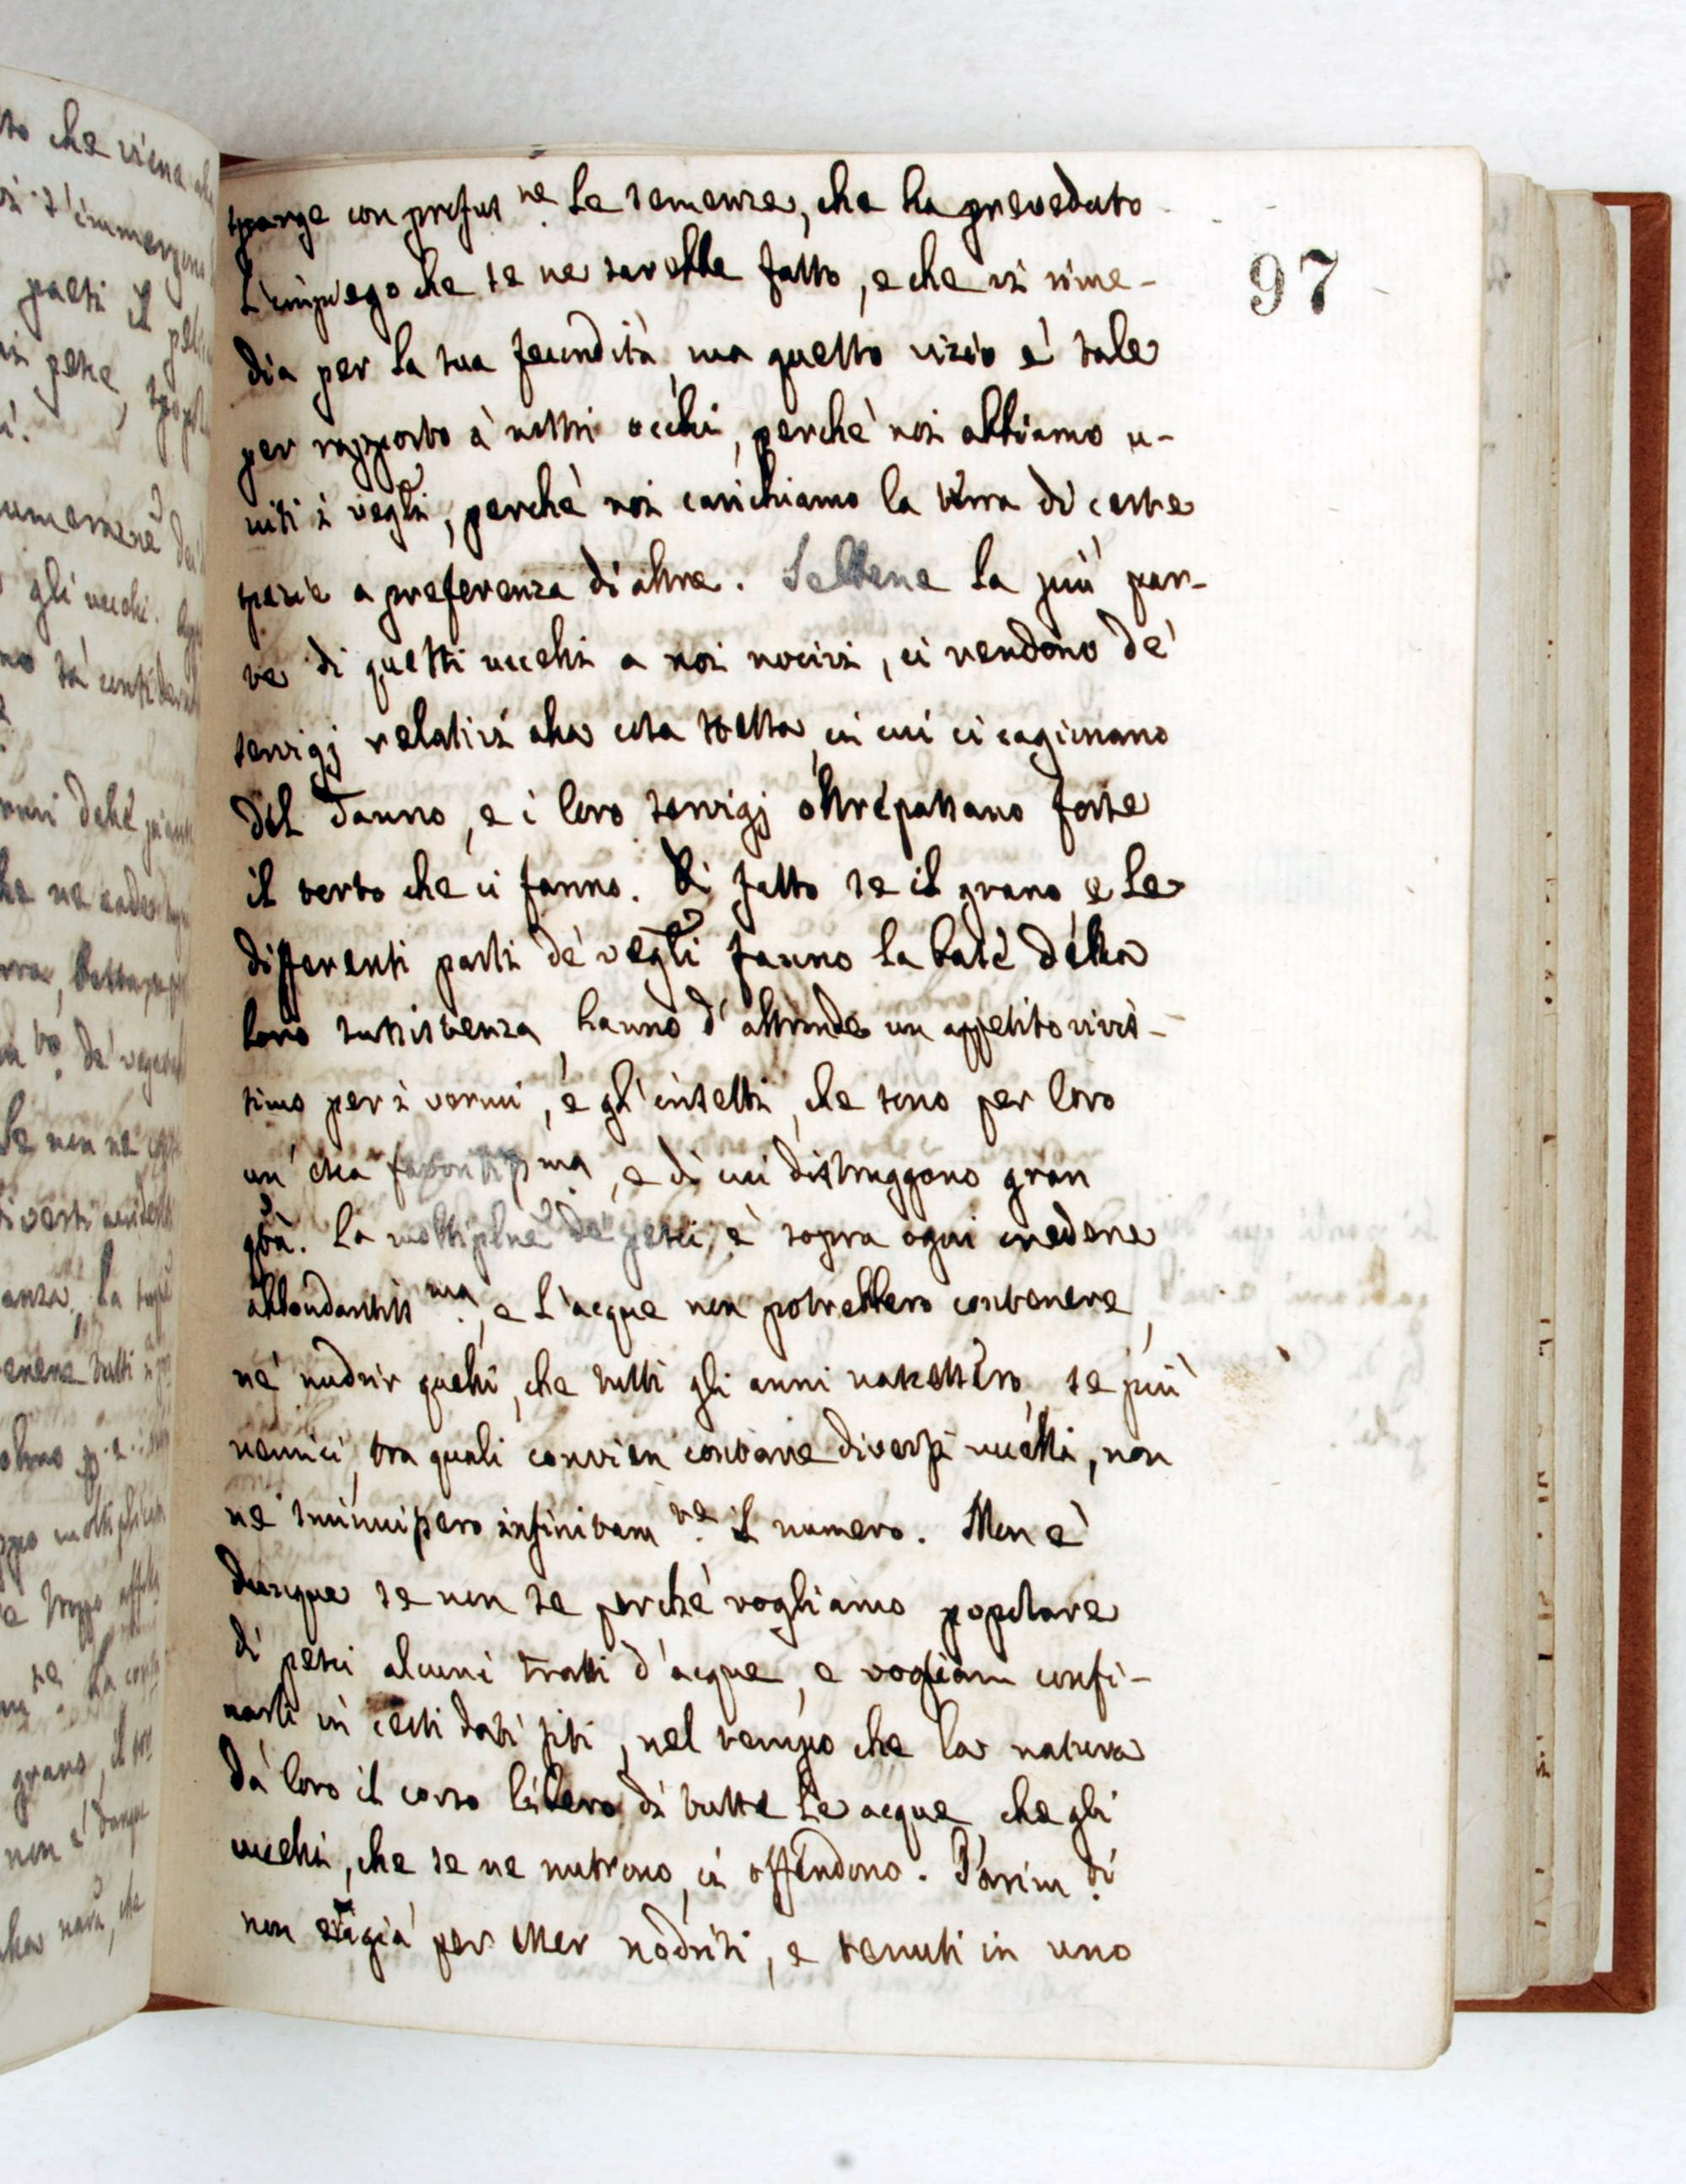 sparge con profus.ne le semenze, che ha preveduto
97
l'impiego che se ne sarebbe fatto, e che vi rime-
dia per la sua fecondità, ma questo vizio è tale
per rapporto a' nostri occhi, perchè noi abbiamo u-
niti i vegli, perchè noi carichiamo la terra di certe
spezie a preferenza di altre. Sebbene la più par-
te di questi uccelli a noi nocivi, ci rendono de'
servigj relativi alla cosa stessa, in cui ci cagionano
del danno, e i loro servigj oltrepassano forse
il torto che ci fanno. Di fatto se il grano, e le
differenti parti de' vegli fanno la base della
loro sussistenza, hanno d'altronde un appetito vivis-
simo per i vermi, e gl'insetti, che sono per loro
un' esca favoritis.ma, e di cui distruggono gran
qtà. La moltiplne de' pesci, è sopra ogni credere
abbondantiss.ma, e l'acque non potrebbero contenere,
nè nudrir quelli, che tutti gli anni nascessero, se più
nemici, tra quali convien contare diversi uccelli, non
ne sminuissero infinitam.te il numero. Non è
dunque se non se perchè vogliamo popolare
di pesci alcuni tratti d'acque, e vogliam confi-
narli in certi dati siti, nel tempo che la natura
dà loro il corso libero di tutte le acque, che gli
uccelli, che se ne nutrono, ci offendono.
non già per esser nodriti, e tenuti in uno